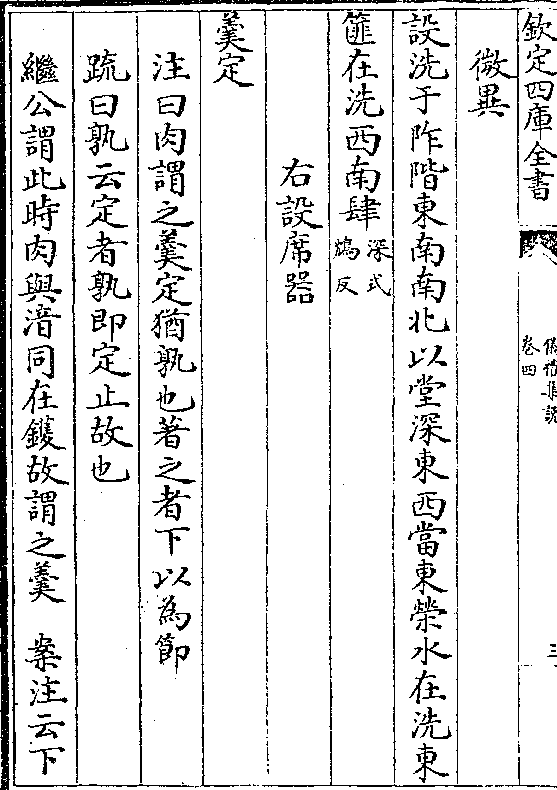 欽定四庫全書
儀禮集說
卷四
三
微異
設洗于阼階東南南北以堂深東西當東榮水在洗東
篚在洗西南肆
深式
鴆反
右設席器
羹定
注曰肉謂之羹定猶孰也著之者下以為節
䟽曰孰云定者孰即定止故也
繼公謂此時肉與湆同在鑊故謂之羹　案注云下